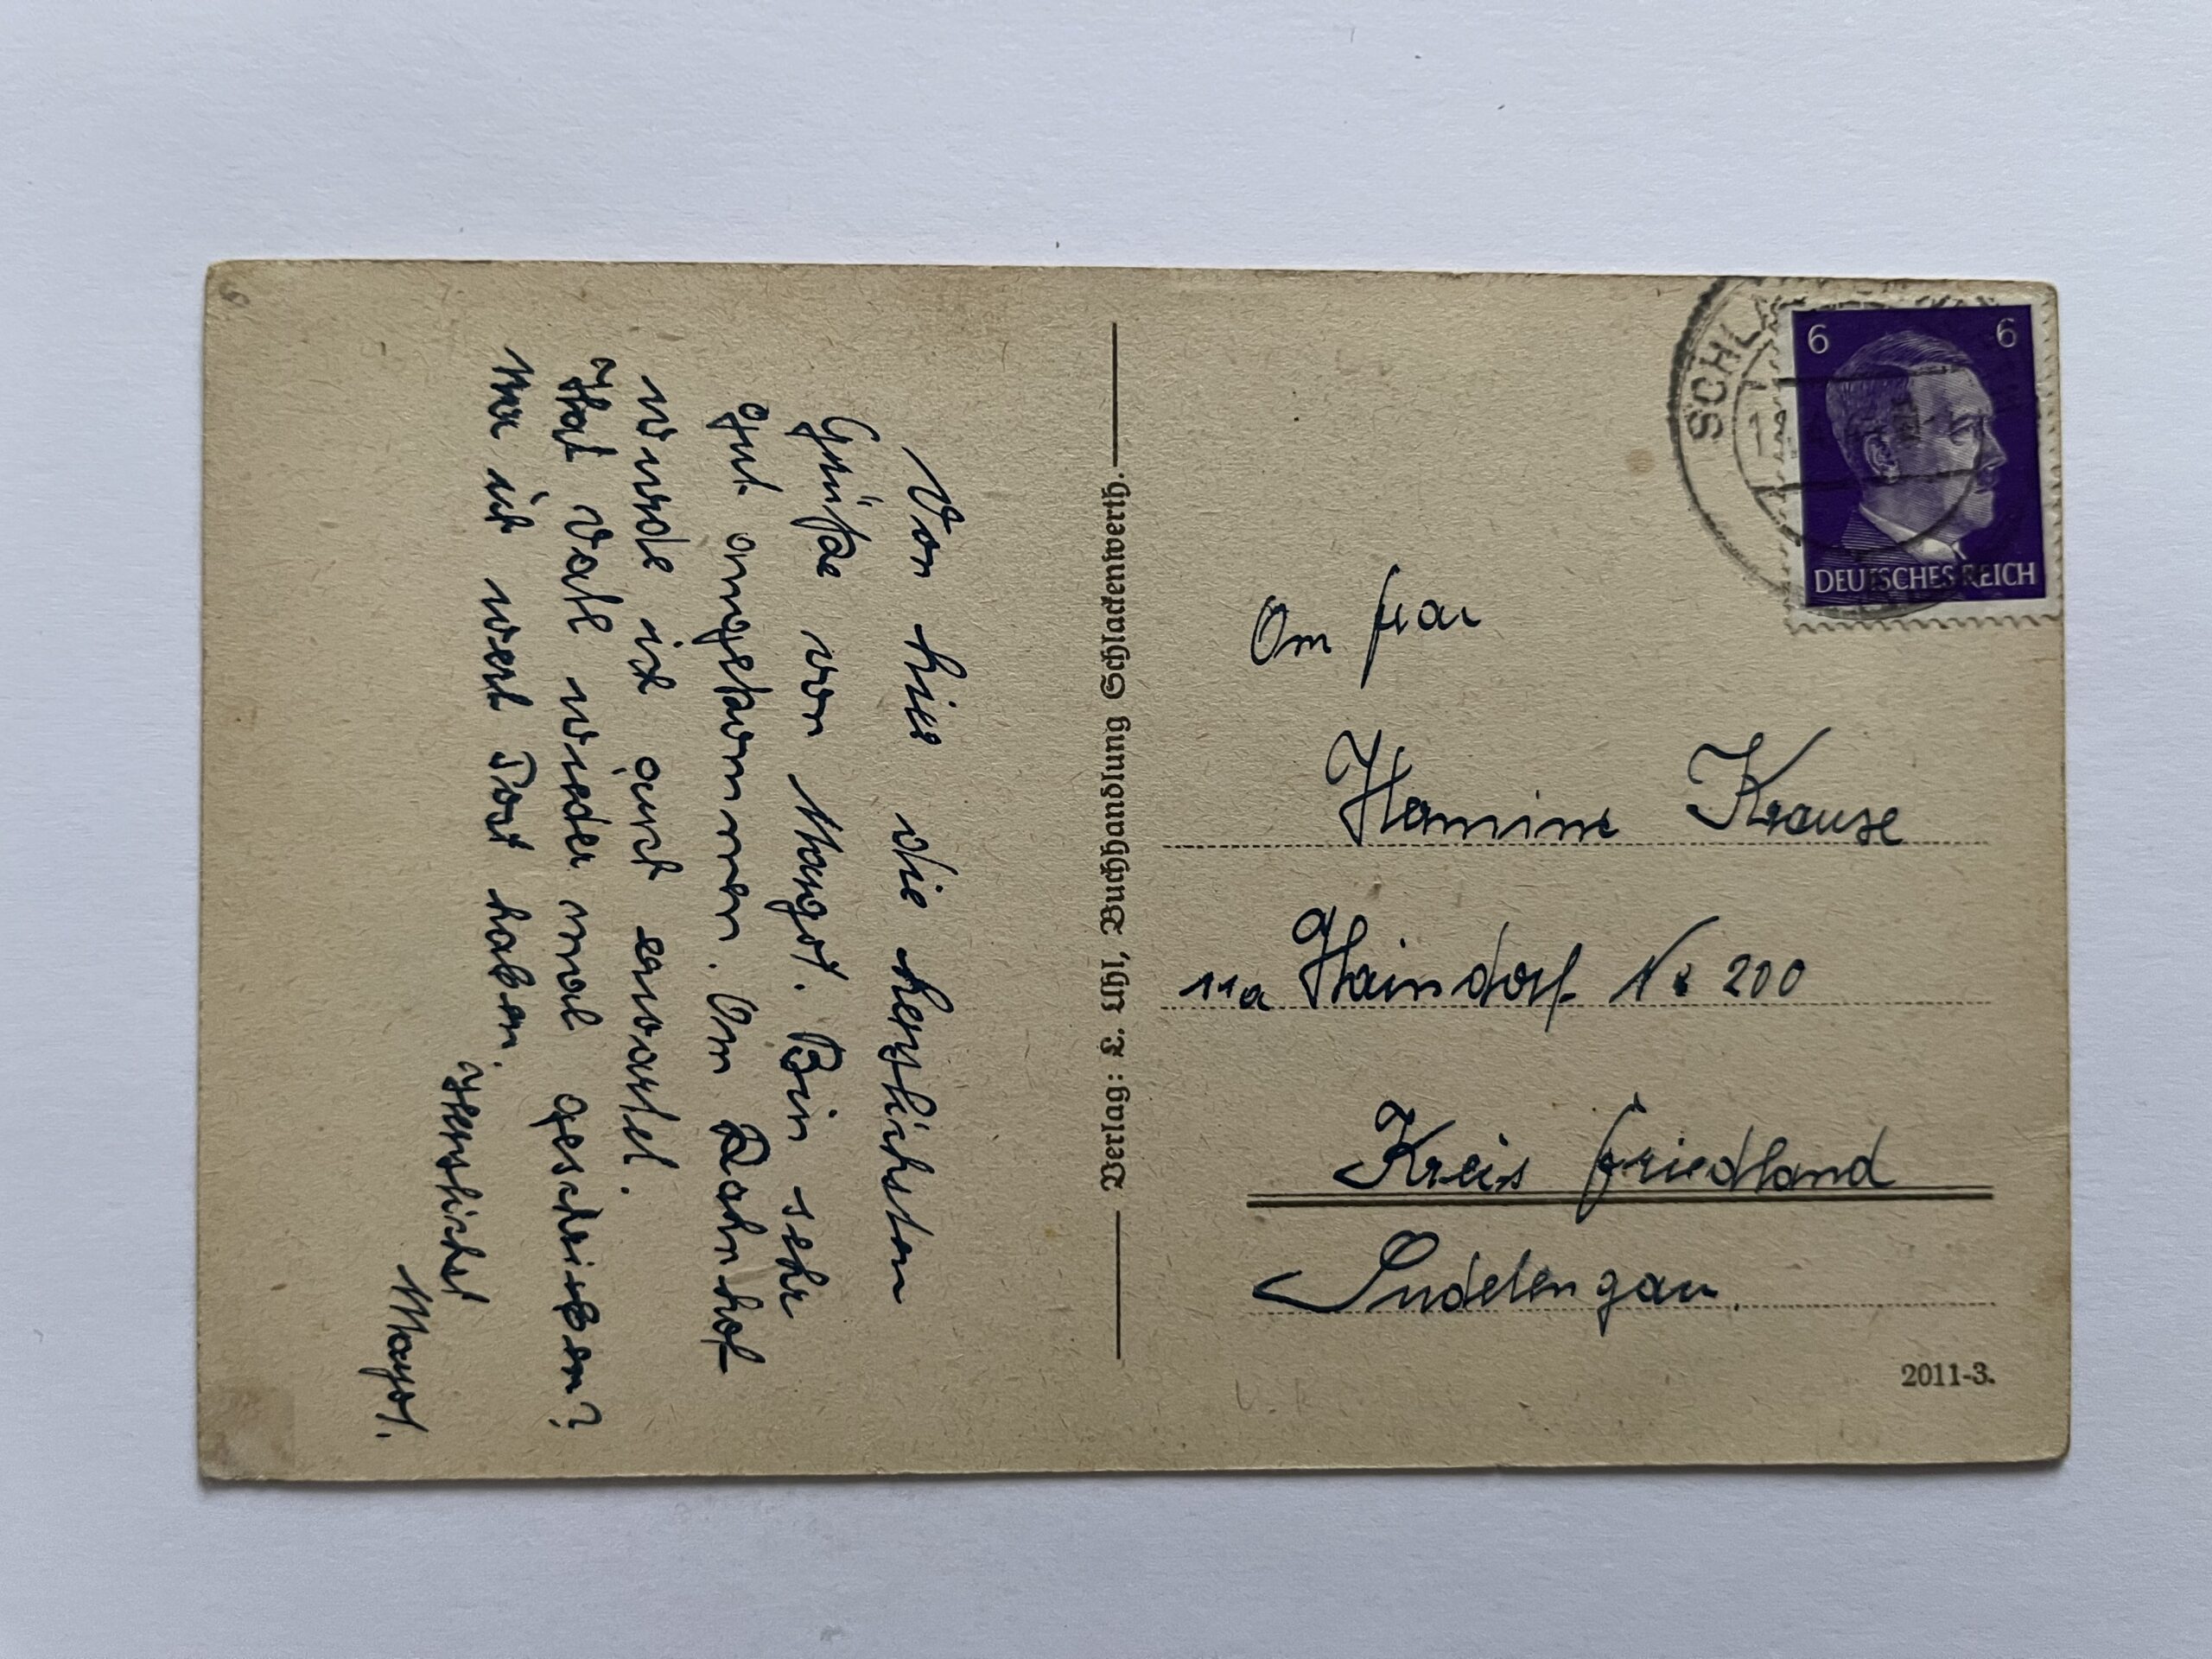 Von hier die herzlichsten
Grüße von Margot. Bin sehr
gut angekommen. Am Bahnhof
wurde ich auch erwartet.
Hat Vati wieder mal geschrieben?
Herzlichst
Margot.
Verlag: L. Uhl, Buchhandlung Schlackenwerth.
SCHLA
6 6
DEUTSCHES REICH
An Frau
Hermine Krause
11a Haindorf Nr 200
Kreis Friedland
Sudetengau
2011-3.